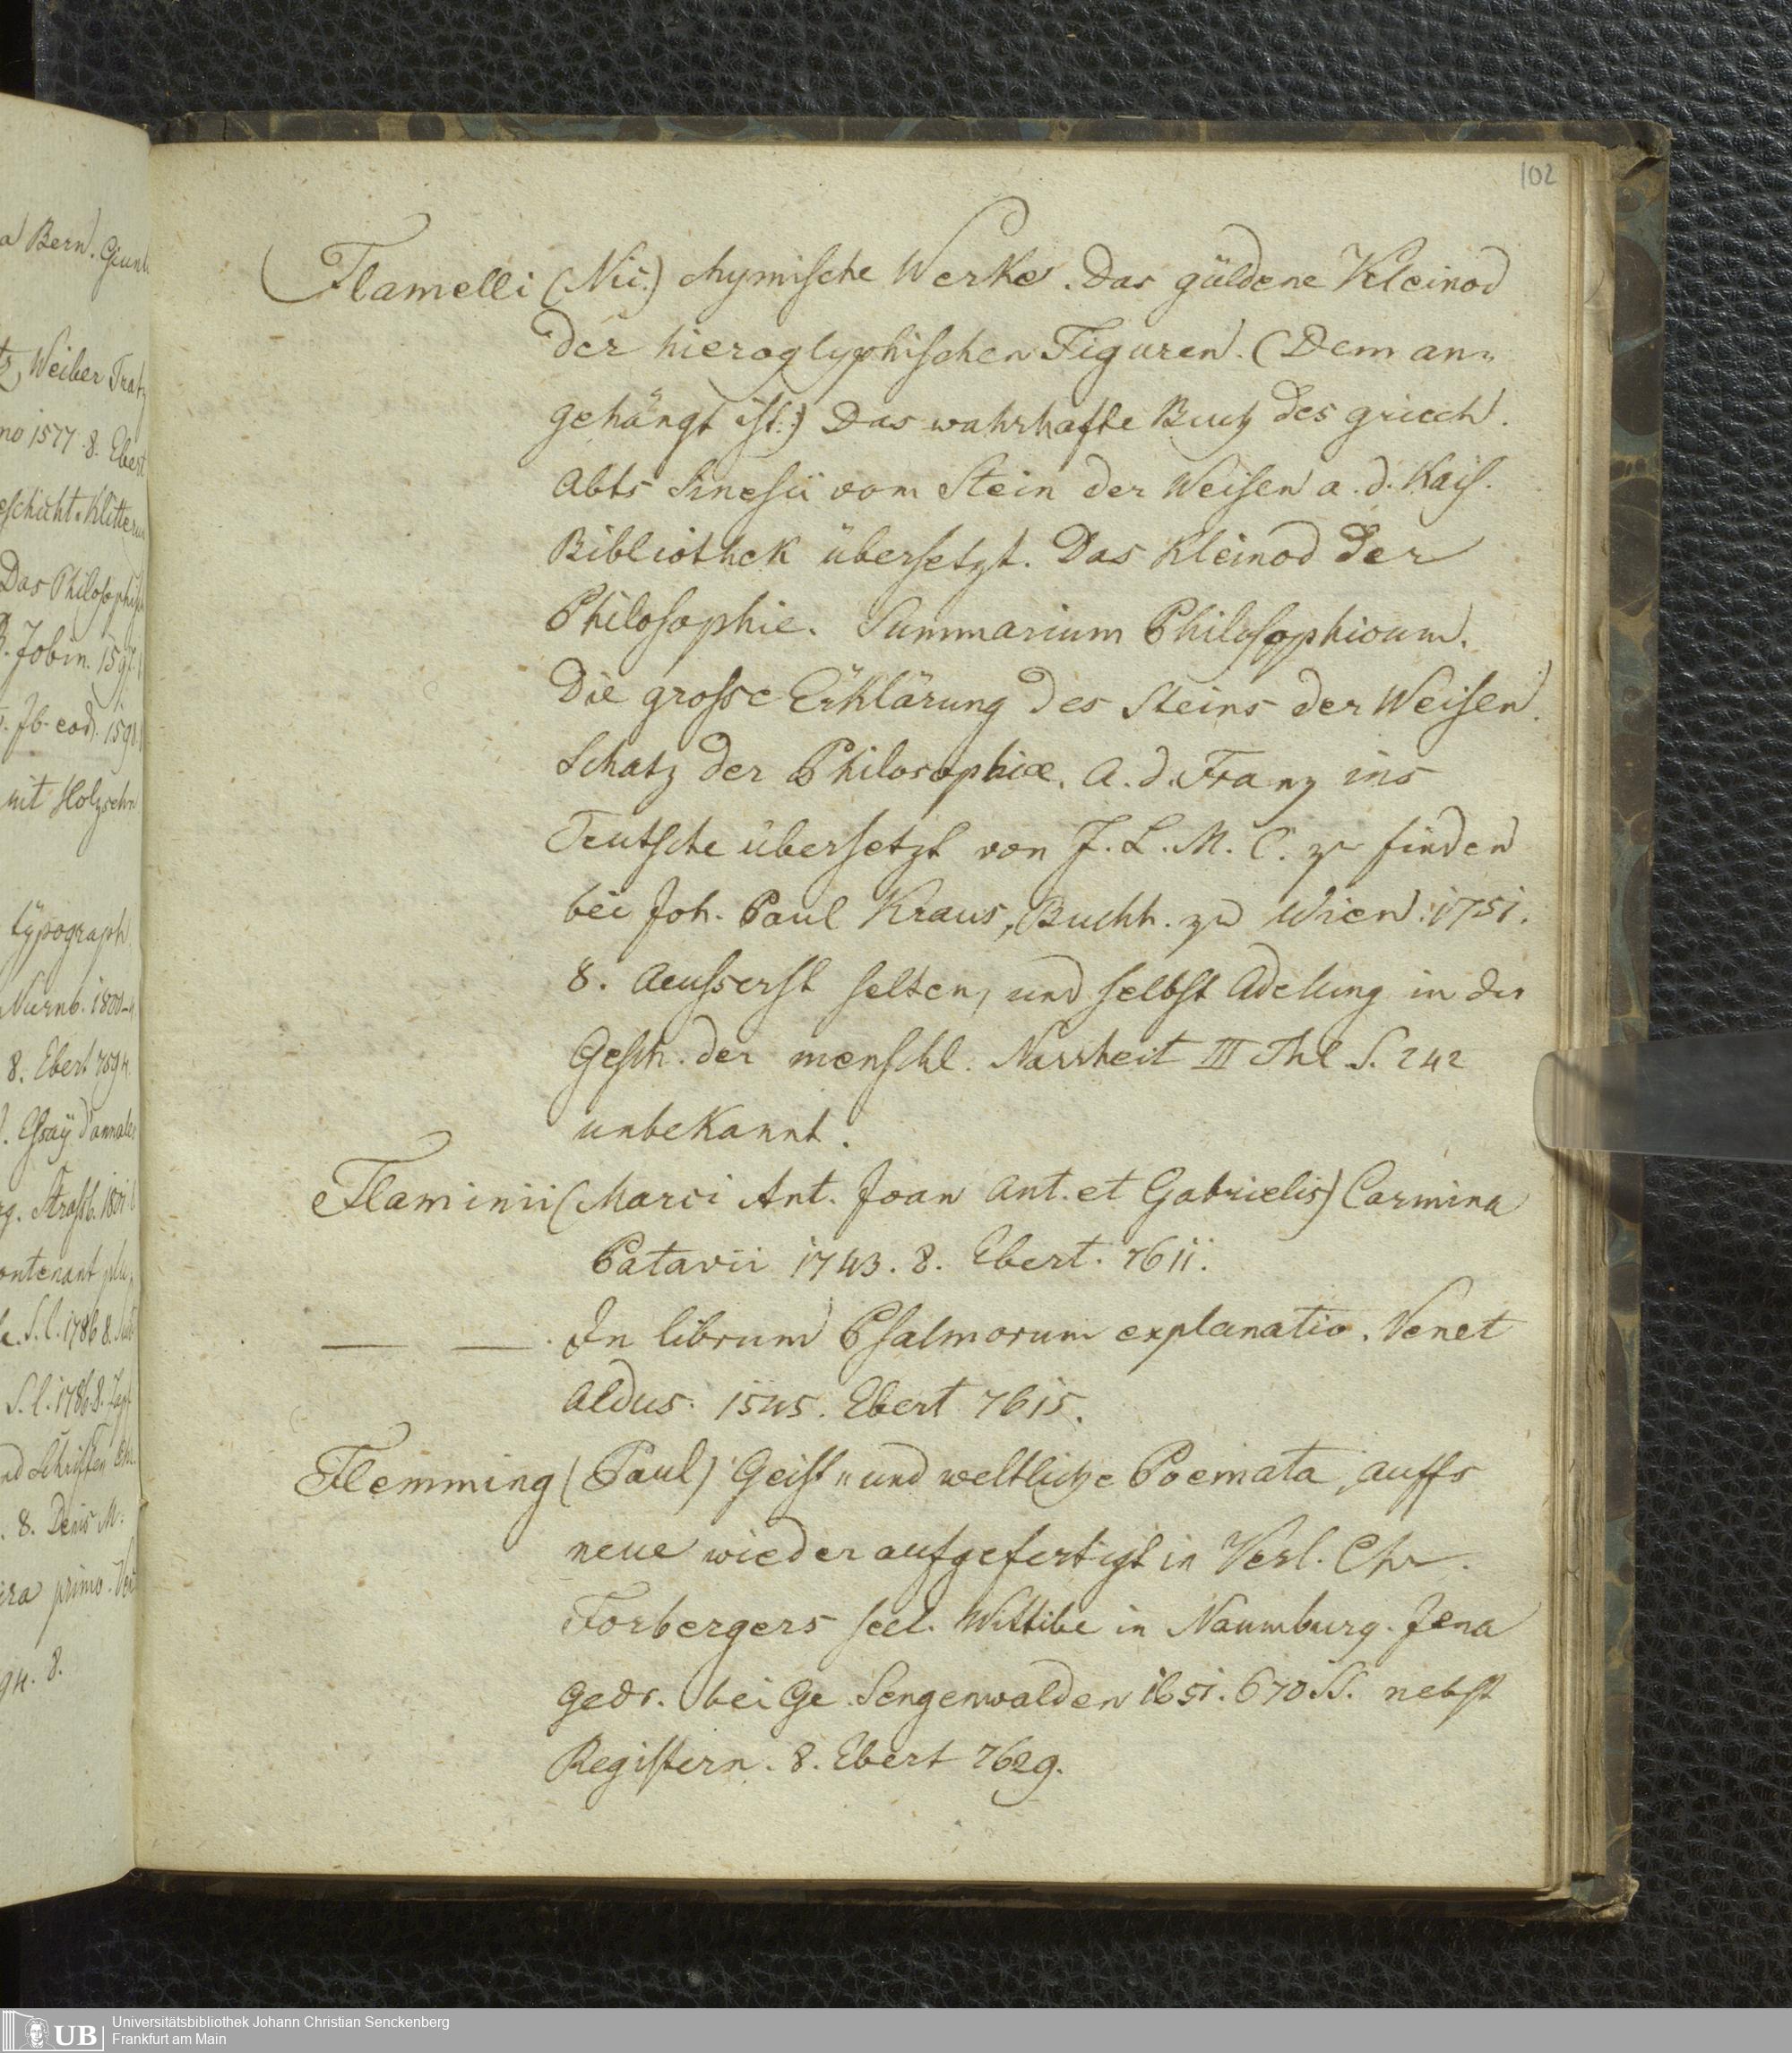 a Bern. Giunt
tz, Weiber Tratz
no 1577. 8. Ebert
eschicht-Klitterun
Das Philosophisch
B. Jobin. 1591.
Ib. eod. 1591
mit Holzschn
typograph
Nürnb. 1801-4.
8. Ebert 7594.
Essay d'annales
rg. Strassb. 1801. 8
ontenant plu,,
S. l. 1786 8.
S. l. 1786. 8. Zapf
nd Schriften
8. Denis M.
ra primo. Ven
94. 8.
102
Flamelli (Nic.) chymische Werke. Das güldene Kleinod
der hieroglyphischen Figuren. (Dem an„
gehängt ist:) Das wahrhafte Buch des griech.
Abts Sinesii vom Stein der Weisen a. d. Kais.
Bibliothek übersetzt. Das Kleinod der
Philosophie. Summarium Philosophicum.
Die grosse Erklärung des Steins der Weisen.
Schatz der Philosophiæ. A. d. Franz ins
Teutsche übersetzt von J. L. M. C. zu finden
bei Joh. Paul Kraus, Buchh. zu Wien. 1751.
8. Aeusserst selten, und selbst Adelung in der
Gesch. der menschl. Narrheit III Thl. S. 242
unbekannt.
Flaminii (Marci Ant. Joan Ant. et Gabrielis) Carmina
Patavii 1743. 8. Ebert. 7611.
— — . In librum Psalmorum explanatio. Venet
Aldus. 1545. Ebert 7615.
Flemming (Paul) Geist„ und weltliche Poemata, auffs
neue wieder aufgefertigt in Verl. Chr.
Forbergers seel. Wittibe in Naumburg. Jena
gedr. bei Ge. Sengenwalden 1651. 670 SS. nebst
Registern. 8. Ebert 7629.
UB
Universitätsbibliothek Johann Christian Senckenberg
Frankfurt am Main